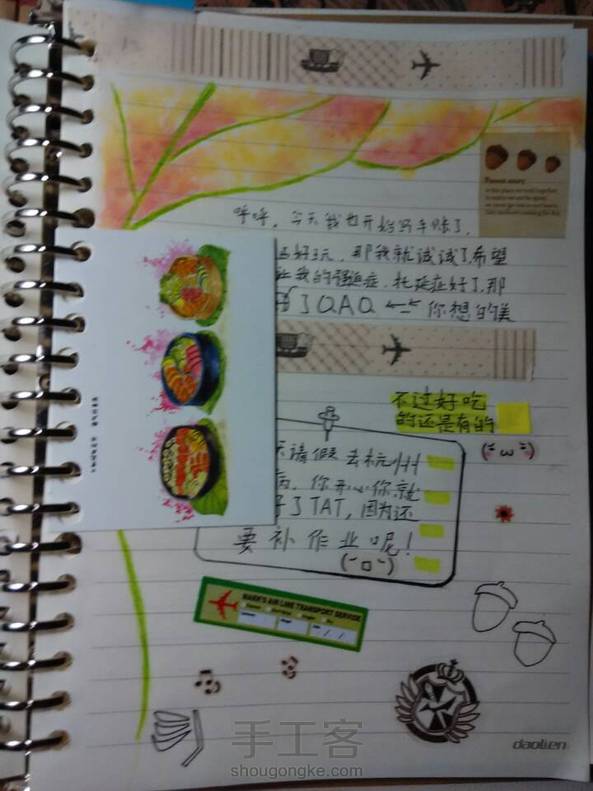 呼呼,今天我也开始写手账了,
还好玩,那我就试试了希望
让我的强迫症、拖延症好了,那
了QAQ 你想的美
不过好吃
的还是有的
(˘ω˘)
天请假去杭州
病,你开心你就
好了TAT,因为还
要补作业呢!
(˘ロ˘)
MARK'S AIR LINE TRANSPORT SERVICE
手工客
shougongke.com
daolien